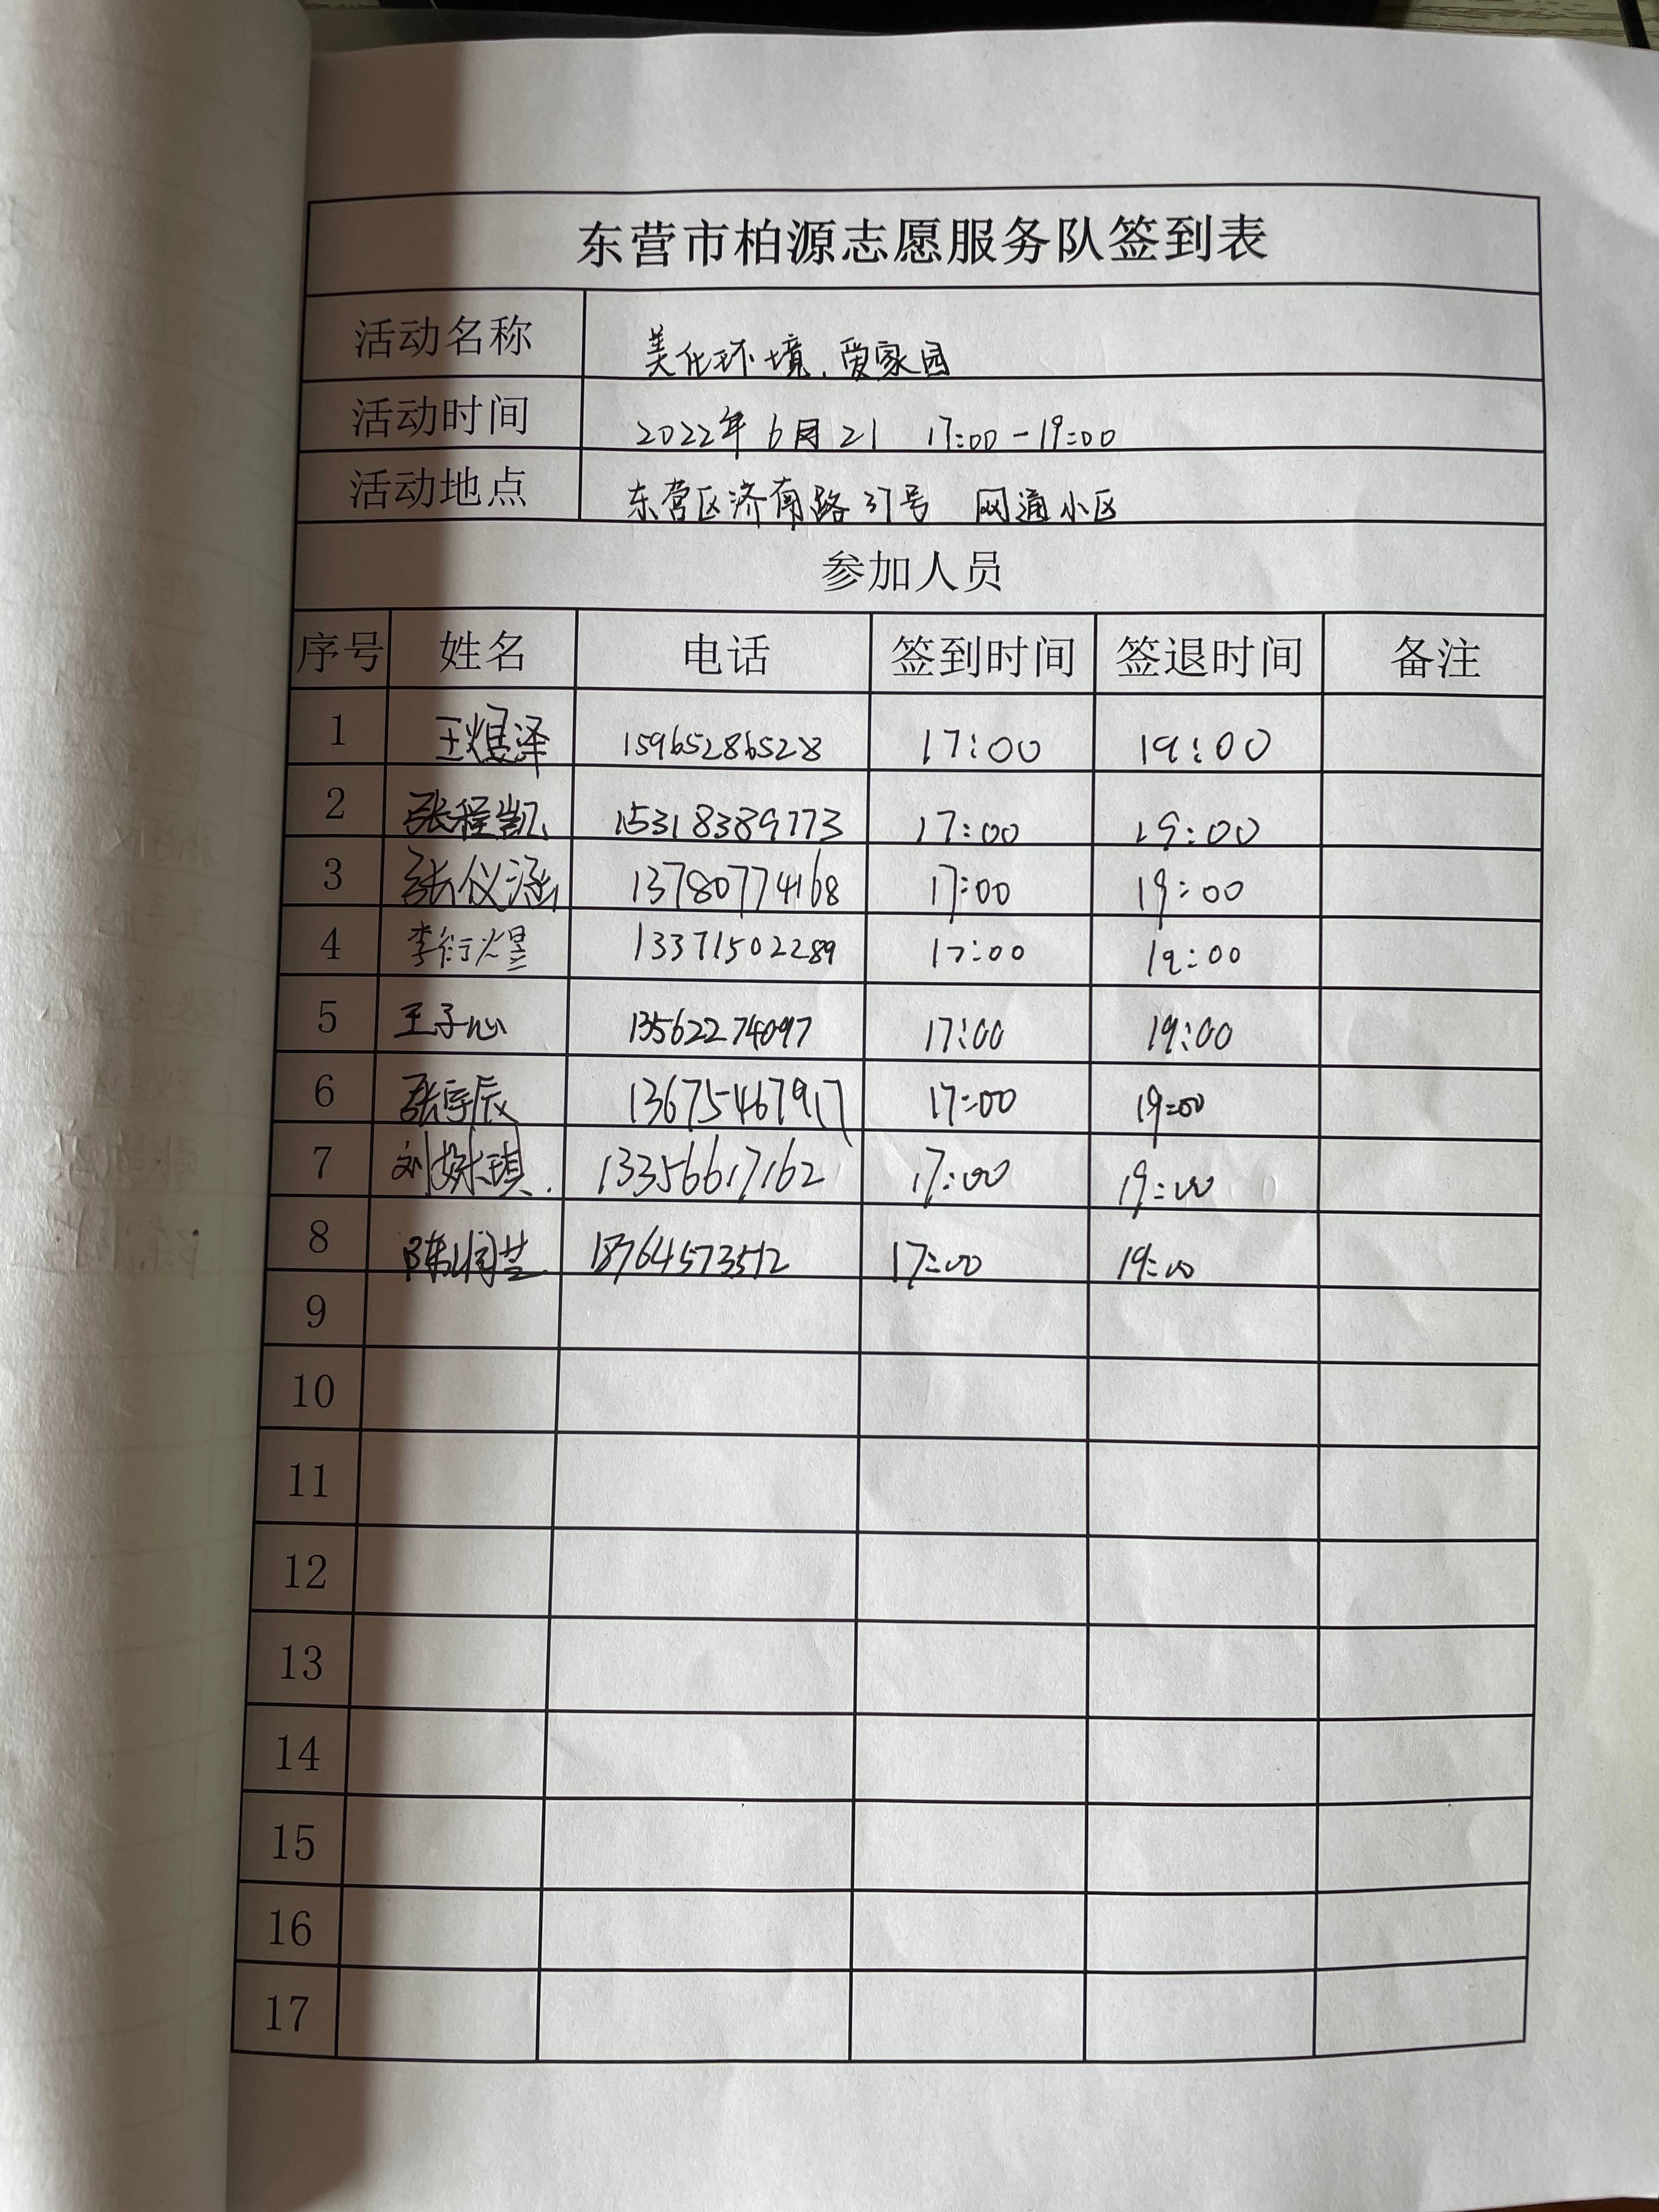 东营市柏源志愿服务队签到表
活动名称 美化环境、爱家园
活动时间 2022年6月21 17:00-19:00
活动地点 东营区济南路37号 网通小区
参加人员
序号 姓名 电话 签到时间 签退时间 备注
1 王煜泽 15965286528 17:00 19:00
2 张程凯 15318389773 17:00 19:00
3 张仪涵 13780774168 17:00 19:00
4 李衍煜 13371502289 17:00 19:00
5 王子心 13562274097 17:00 19:00
6 张宇辰 13675467917 17:00 19:00
7 13356617162 17:00 19:00
8 18764573512 17:00 19:00
9
10
11
12
13
14
15
16
17